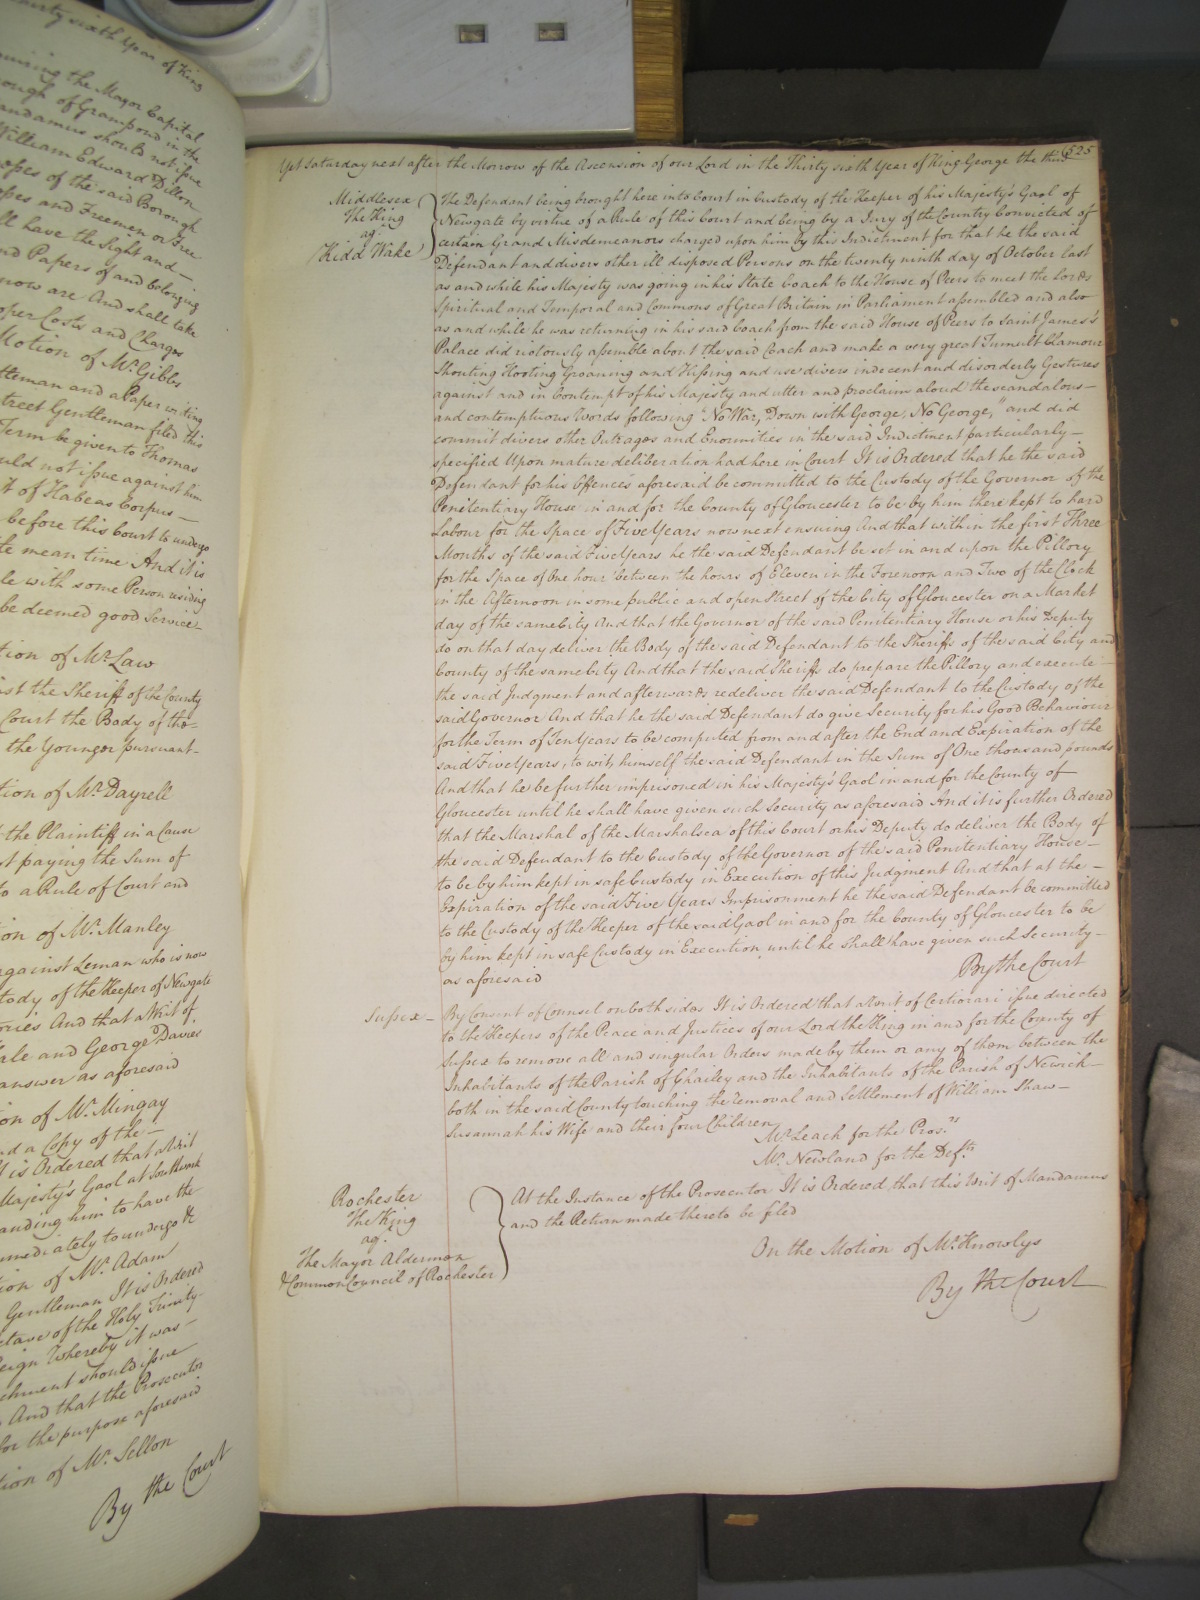 Thirty sixth Year of King
requiring the Mayor Capital
Borough of Grampond in the
Mandamus should not issue
William Edward Dillon
of the said Borough
and Freemen or Free
all have the Sight and —
and Papers of and belonging
now are And shall take
proper Costs and Charges
Motion of Mr. Gibbs
Gentleman and a Paper writing
Street Gentleman filed this
Term be given to Thomas
should not issue against him
Writ of Habeas Corpus —
before this Court to undergo
the mean time And it is
with some Person residing
be deemed good Service —
Motion of Mr. Law
against the Sheriff of the County
Court the Body of the =
the Younger pursuant —
Motion of Mr. Dayrell
the Plaintiff in a Cause
paying the Sum of
to a Rule of Court and
Motion of Mr. Manley
against Leman who is now
Custody of the Keeper of Newgate
And that a Writ of
and George Davies
answer as aforesaid
Motion of Mr. Mingay
and a Copy of the —
It is Ordered that a Writ
Majesty's Gaol at Southwark
commanding him to have the
immediately to undergo &c
Motion of Mr. Adam
Gentleman It is Ordered
Octave of the Holy Trinity
Whereby it was —
Attachment should issue
And that the Prosecutor
for the purpose aforesaid
Motion of Mr. Sellon
By the Court
525
Yet Saturday next after the Morrow of the Ascension of our Lord in the Thirty sixth Year of King George the third
Middlesex
The King
agt.
Kidd Wake
The Defendant being brought here into Court in Custody of the Keeper of his Majesty's Gaol of
Newgate by virtue of a Rule of this Court and being by a Jury of the Country Convicted of
certain Grand Misdemeanors charged upon him by this Indictment for that he the said
Defendant and divers other ill disposed Persons on the twenty ninth day of October last
as and while his Majesty was going in his State Coach to the House of Peers to meet the Lords
Spiritual and Temporal and Commons of Great Britain in Parliament assembled and also
as and while he was returning in his said Coach from the said House of Peers to Saint James's
Palace did riotously assemble about the said Coach and make a very great Tumult Clamour
Shouting Hooting Groaning and Hissing and use divers indecent and disorderly Gestures
against and in Contempt of his Majesty and utter and proclaim aloud the scandalous —
and contemptuous Words following "No War, Down with George, No George," and did
commit divers other Outrages and Enormities in the said Indictment particularly —
specified Upon mature deliberation had here in Court It is Ordered that he the said
Defendant for his Offences aforesaid be committed to the Custody of the Governor of the
Penitentiary House in and for the County of Gloucester to be by him there kept to hard
Labour for the Space of Five Years now next ensuing And that within the first Three
Months of the said Five Years he the said Defendant be set in and upon the Pillory
for the Space of One hour between the hours of Eleven in the Forenoon and Two of the Clock
in the Afternoon in some public and open Street of the City of Gloucester on a Market
day of the same City And that the Governor of the said Penitentiary House or his Deputy
do on that day deliver the Body of the said Defendant to the Sheriffs of the said City and
County of the same City And that the said Sheriffs do prepare the Pillory and execute —
the said Judgment and afterwards redeliver the said Defendant to the Custody of the
said Governor And that he the said Defendant do give Security for his Good Behaviour
for the Term of Ten Years to be computed from and after the End and Expiration of the
said Five Years, to wit, himself the said Defendant in the Sum of One thousand pounds
And that he be further imprisoned in his Majesty's Gaol in and for the County of —
Gloucester until he shall have given such Security as aforesaid And it is further Ordered
that the Marshal of the Marshalsea of this Court or his Deputy do deliver the Body of
the said Defendant to the Custody of the Governor of the said Penitentiary House —
to be by him kept in safe Custody in Execution of this Judgment And that at the —
Expiration of the said Five Years Imprisonment he the said Defendant be committed
to the Custody of the Keeper of the said Gaol in and for the County of Gloucester to be
by him kept in safe Custody in Execution until he shall have given such Security —
as aforesaid
By the Court
Sussex —
By Consent of Counsel on both sides It is Ordered that a Writ of Certiorari issue directed
to the Keepers of the Peace and Justices of our Lord the King in and for the County of
Sussex to remove all and singular Orders made by them or any of them between the
Inhabitants of the Parish of Chailey and the Inhabitants of the Parish of Newick —
both in the said County touching the Removal and Settlement of William Shaw —
Susannah his Wife and their four Children
Mr. Leach for the Pros.rs
Mr. Newland for the Def.ts
Rochester
The King
agt.
The Mayor Alderman
& Common Council of Rochester
At the Instance of the Prosecutor It is Ordered that this Writ of Mandamus
and the Return made thereto be filed
On the Motion of Mr. Knowlys
By the Court